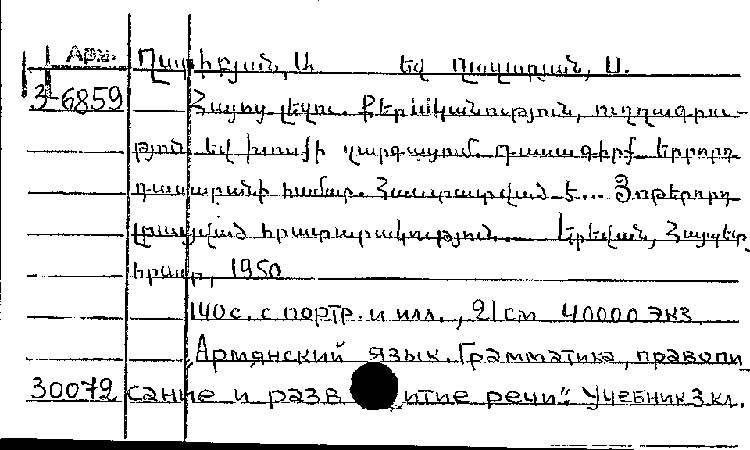 Арм. Ղարիբյան, Ա. եվ Ղազարյան, Ս.
3-6859 Հայոց լեզու. Քերականություն, ուղղագրու-
թյուն եվ խոսքի զարգացում. Դասագիրք երրորդ
դասարանի համար. Հաստատված է... Յոթերորդ
լրացված հրատարակություն. Երեվան, Հայպետ
հրատ, 1950
140 с. с портр. и илл., 21 см 40000 экз
„Армянский язык. Грамматика, правопи
30072 сание и развитие речи“. Учебник 3 кл.